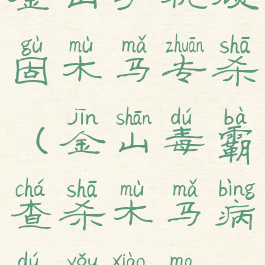 gù mù mǎ zhuān shā
固木马专杀
jīn shān dú bà
（金山毒霸
chá shā mù mǎ bìng
查杀木马病
dú yǒu xiào ma